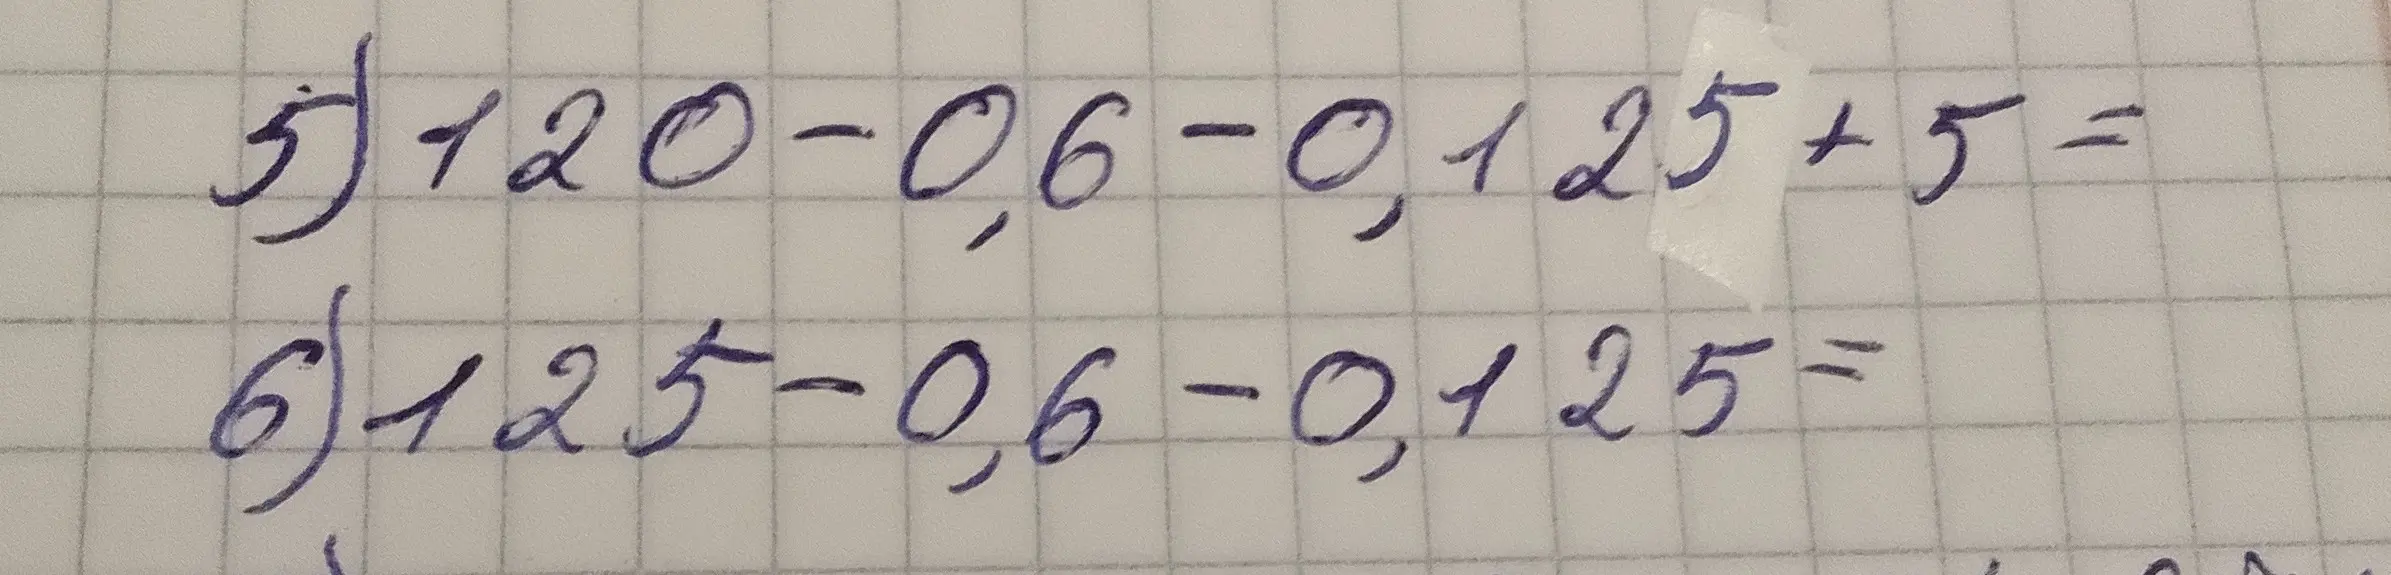 5) 120 - 0,6 - 0,125 + 5 =
6) 125 - 0,6 - 0,125 =